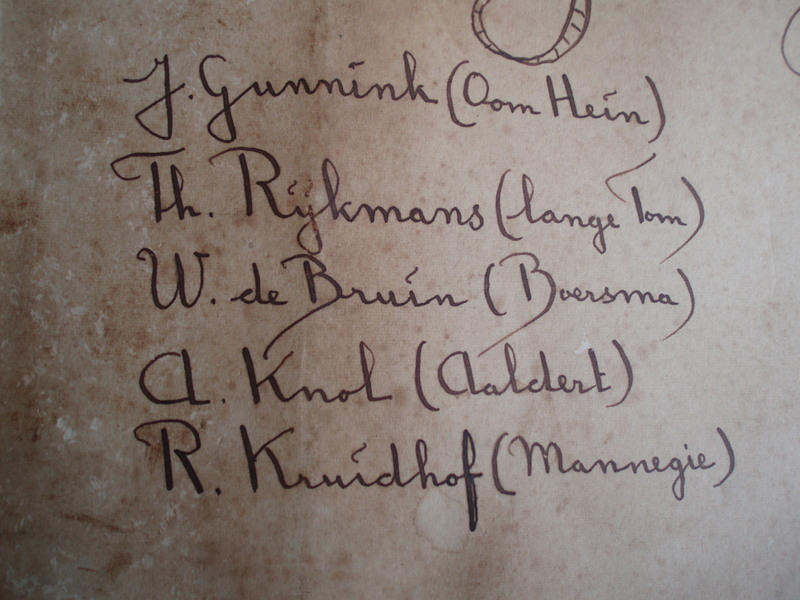 J. Gunnink (Oom Hein)
Th. Rijkmans (lange Tom)
W. de Bruin (Boersma)
A. Knol (Aaldert)
R. Kruidhof (Mannegie)